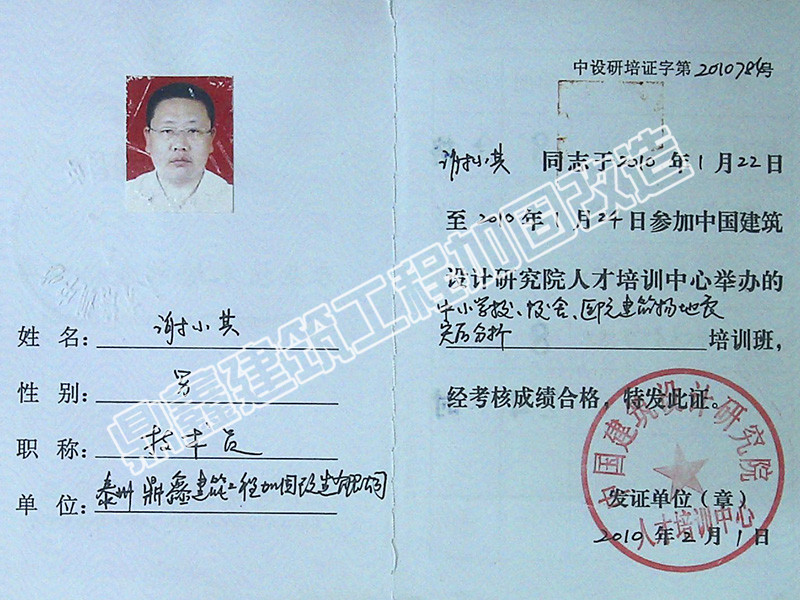 中设研培证字第2010784号
谢小其 同志于2010年1月22日
至2010年1月24日参加中国建筑
设计研究院人才培训中心举办的
中小学校、校舍、医院建筑物地震
灾后分析 培训班，
经考核成绩合格，特发此证。
发证单位（章）
2010年2月1日
中国建筑设计研究院
人才培训中心
姓名：谢小其
性别：男
职称：技术员
单位：泰州鼎鑫建筑工程加固改造有限公司
鼎鑫建筑工程加固改造